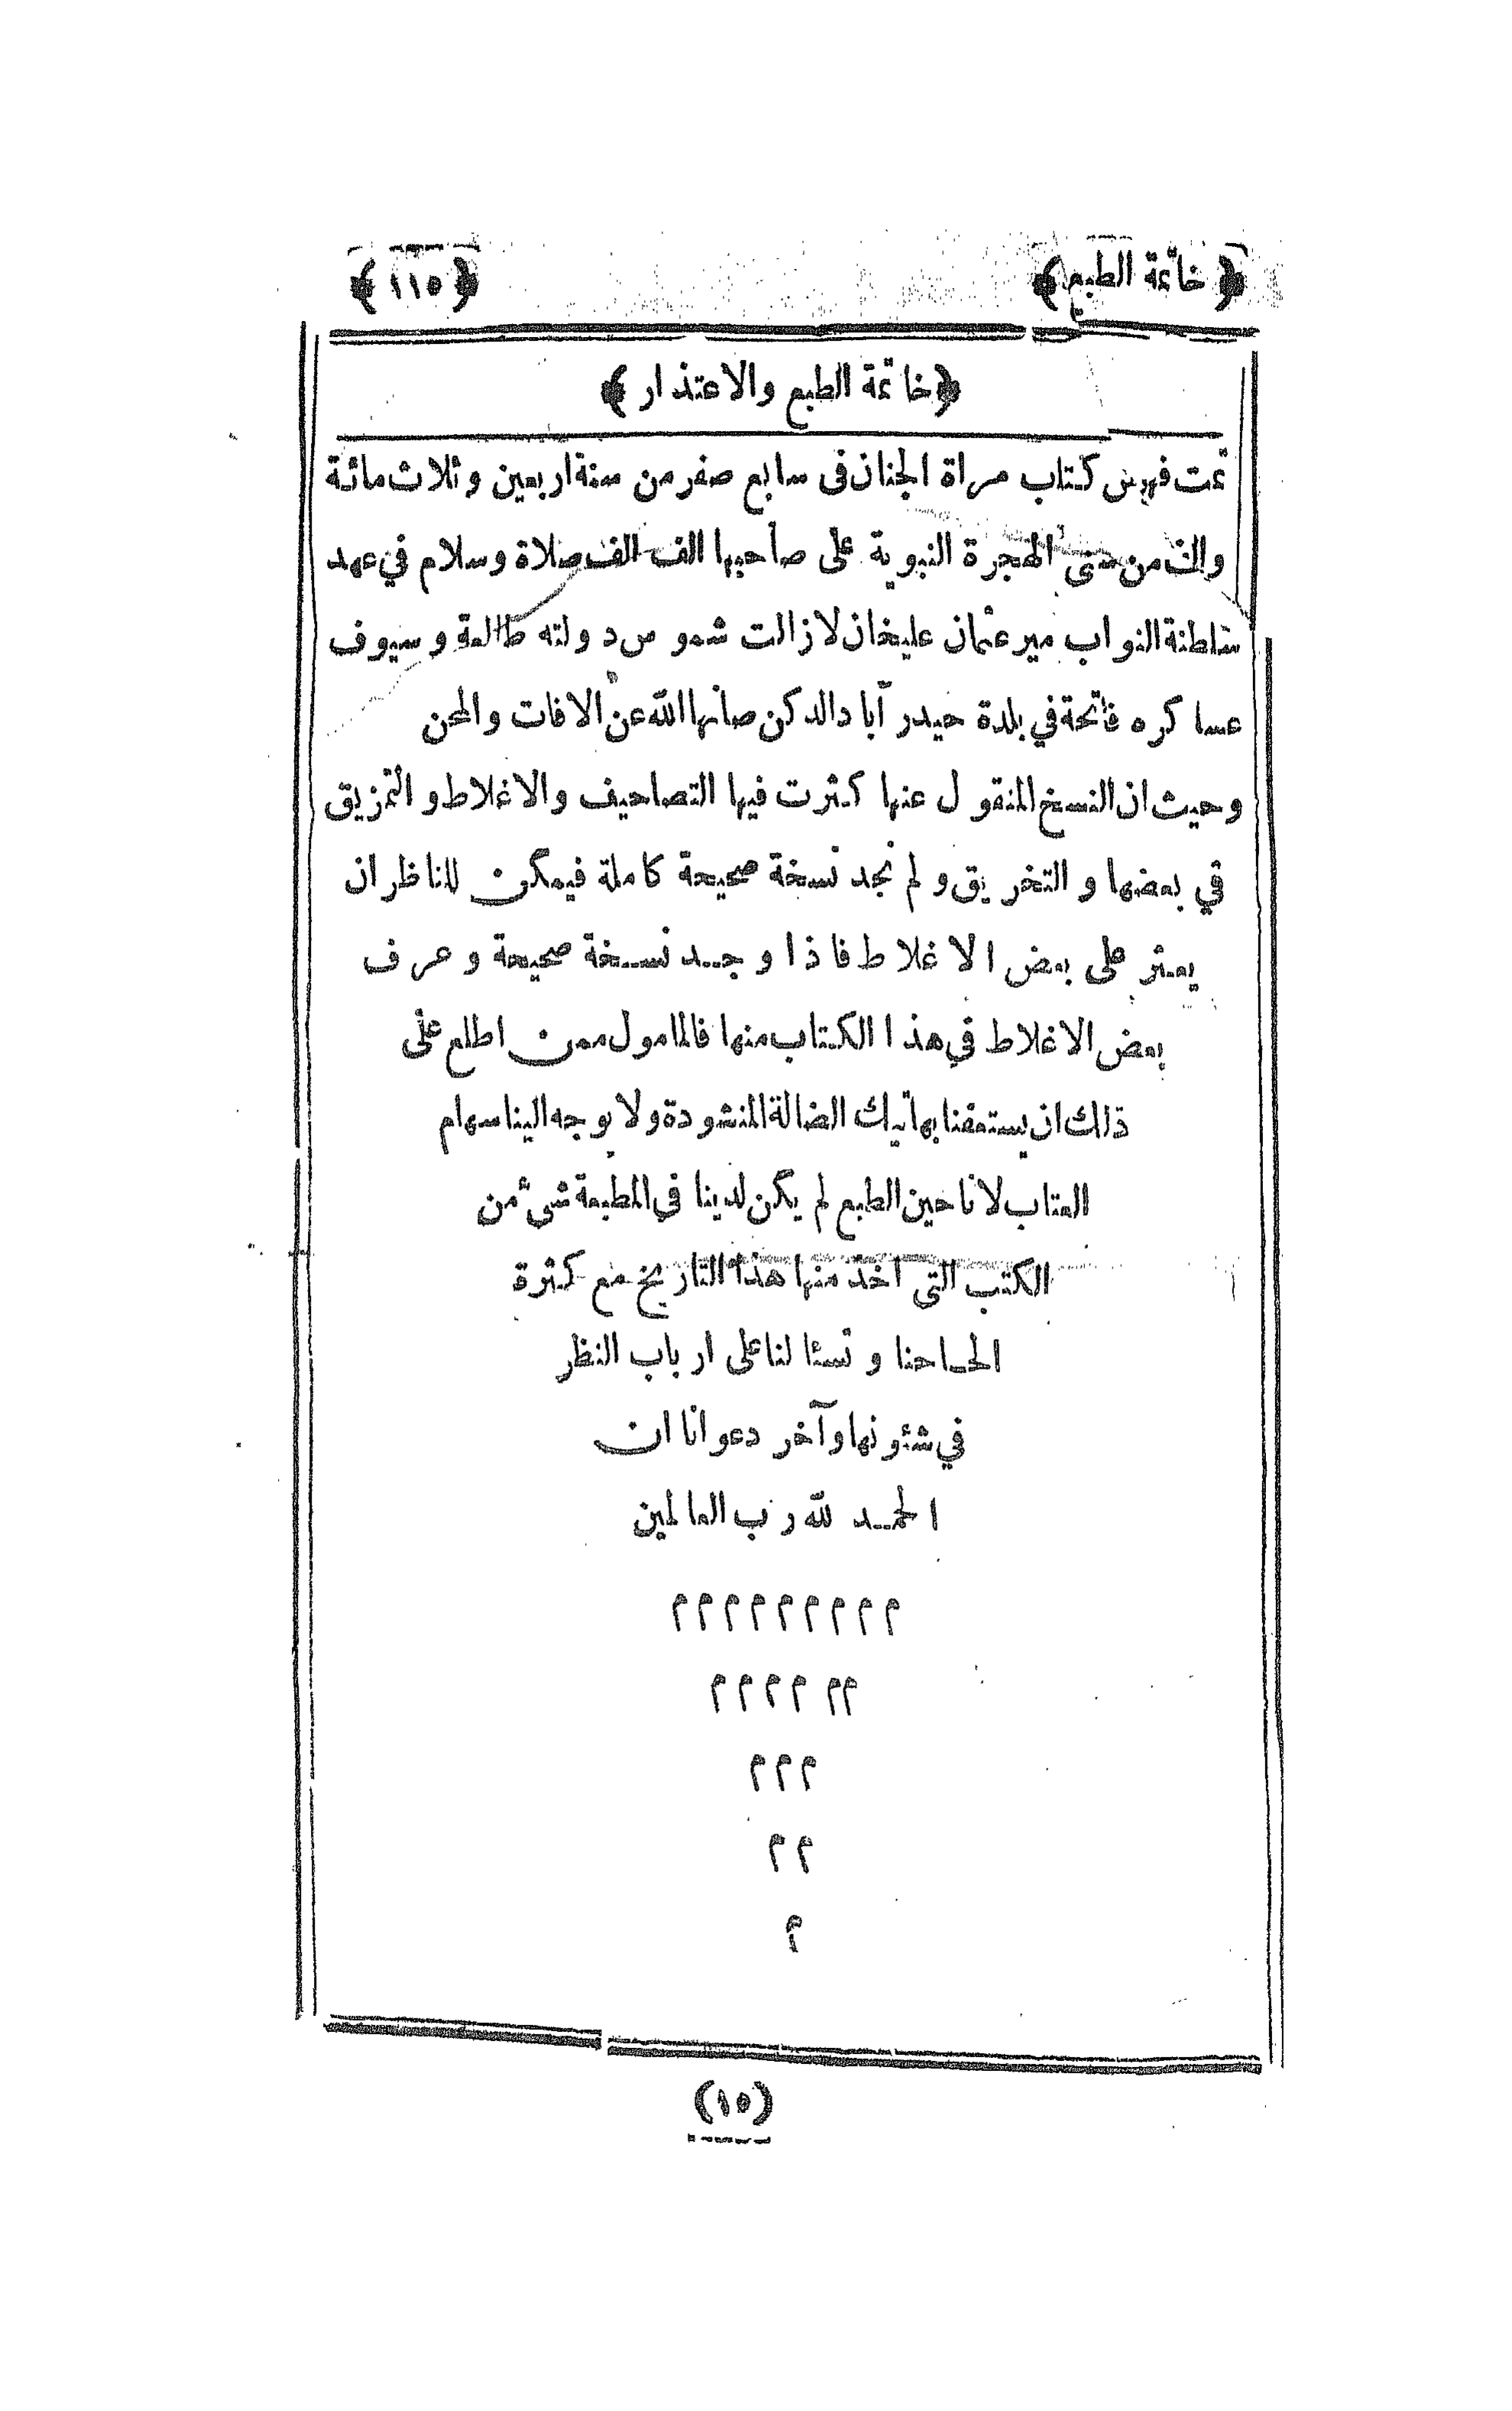 ﴿ خاتمة الطبع ﴾ ﴿ ١١٥ ﴾
﴿ خاتمة الطبع والاعتذار ﴾
تمت فهرس كتاب مراة الجنان فى سابع صفر من سنة اربعين وثلاث مائة
والف من سنى الهجرة النبوية على صاحبها الف الف صلاة وسلام في عهد
سلطنة النواب مير عثمان عليخان لازالت شموس دولته طالعة وسيوف
عساكره فاتحة في بلدة حيدر آباد الدكن صانها الله عن الافات والمحن
وحيث ان النسخ المنقول عنها كثرت فيها التصاحيف والاغلاط والتمزيق
في بعضها والتخريق ولم نجد نسخة صحيحة كاملة فيمكن للناظر ان
يعثر على بعض الاغلاط فاذا وجد نسخة صحيحة وعرف
بعض الاغلاط في هذا الكتاب منها فالمامول ممن اطلع على
ذلك ان يستعفنا بهاتيك الضالة المنشودة ولا يوجه الينا سهام
العتاب لانا حين الطبع لم يكن لدينا في المطبعة شىء من
الكتب التى اخذ منها هذا التاريخ مع كثرة
الحاحنا وتسئالنا على ارباب النظر
في شئونها وآخر دعوانا ان
الحمد لله رب العالمين
م م م م م م م م م
م م م م م م
م م م
م م
م
(١٥)